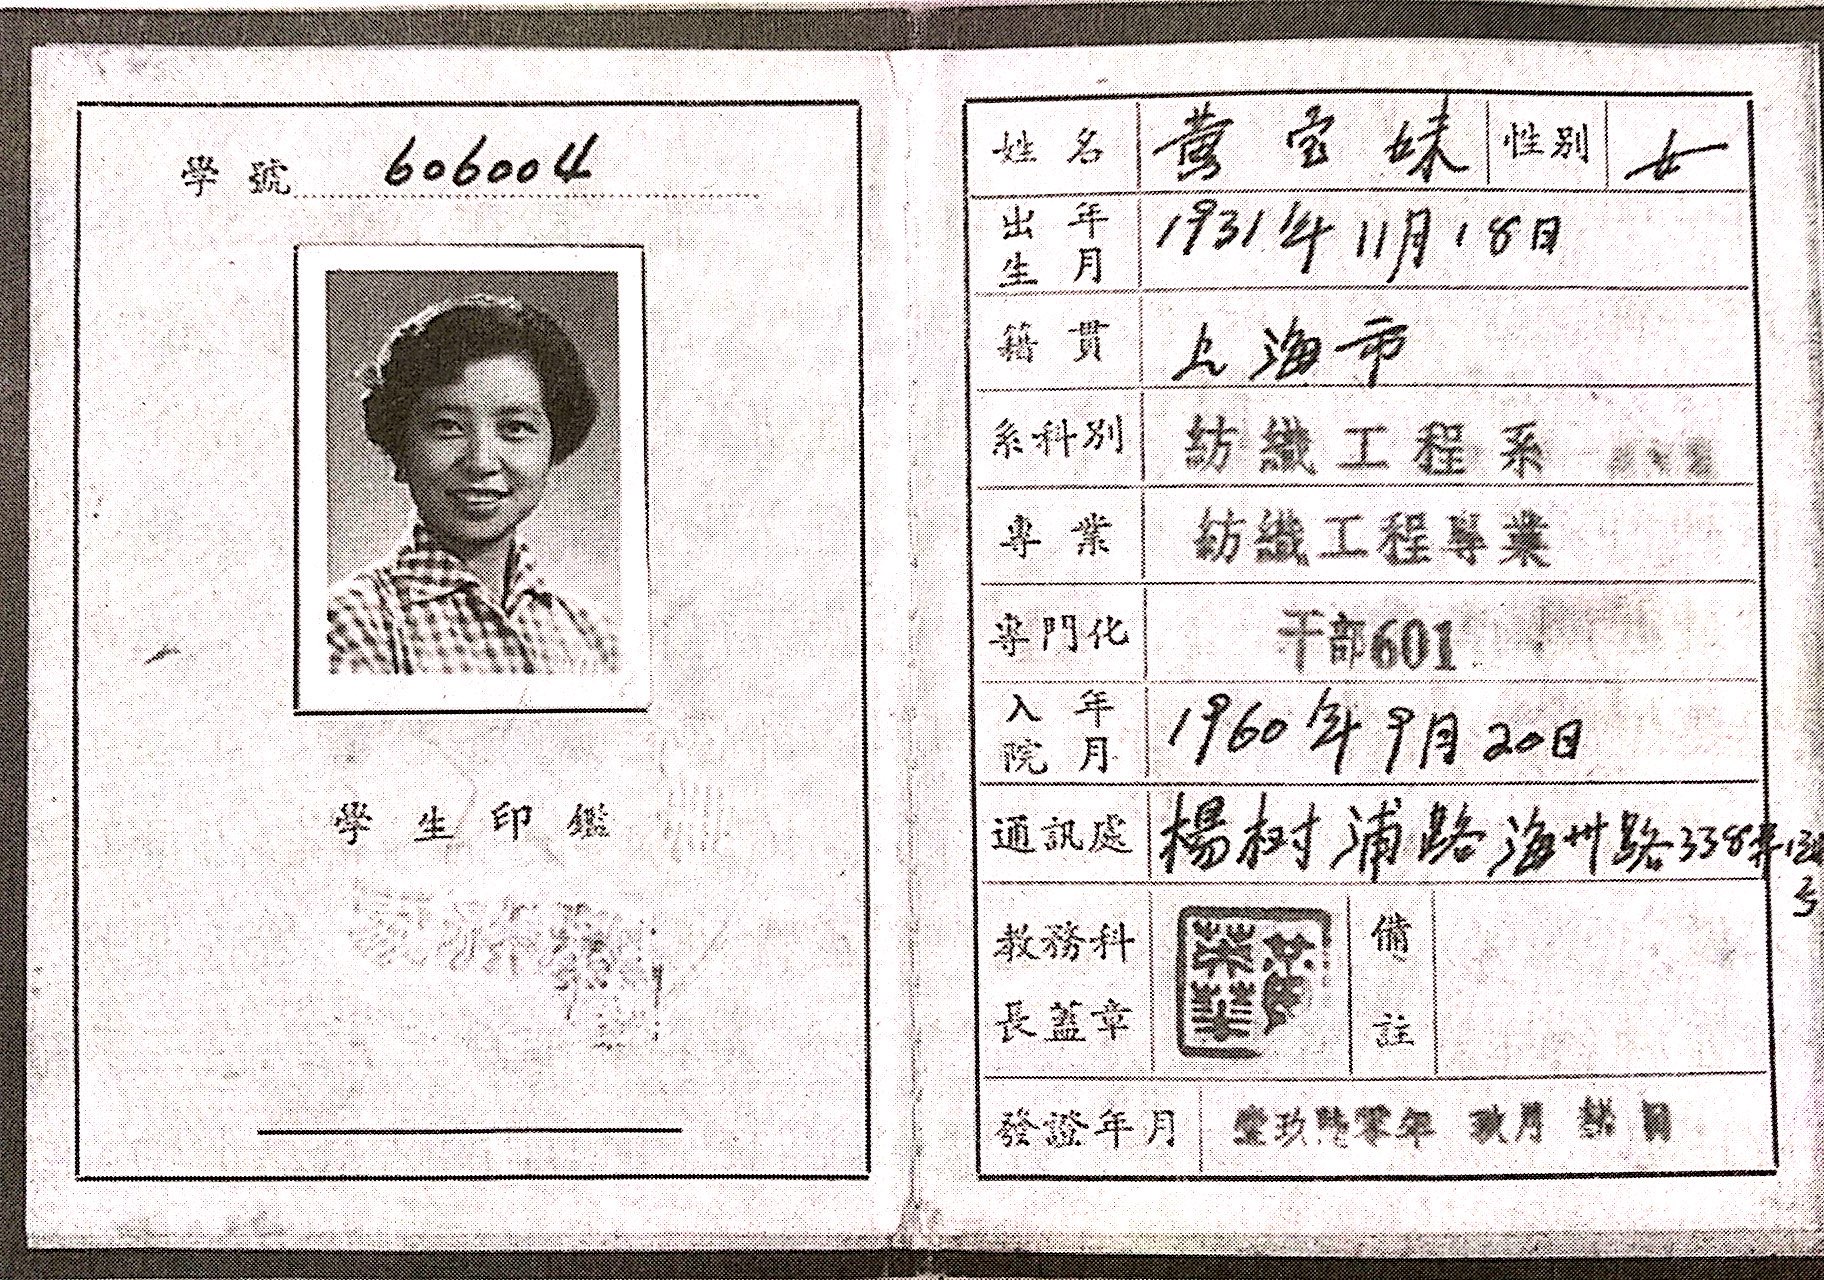 學號 606004
學生印鑑
姓名 黄宝妹 性别 女
出生年月 1931年11月18日
籍貫 上海市
系科别 紡織工程系
專業 紡織工程專業
專門化 干部601
入院年月 1960年9月20日
通訊處 楊树浦路海州路338弄
号
教務科長蓋章
備註
發證年月 壹玖陸零年 玖月 日